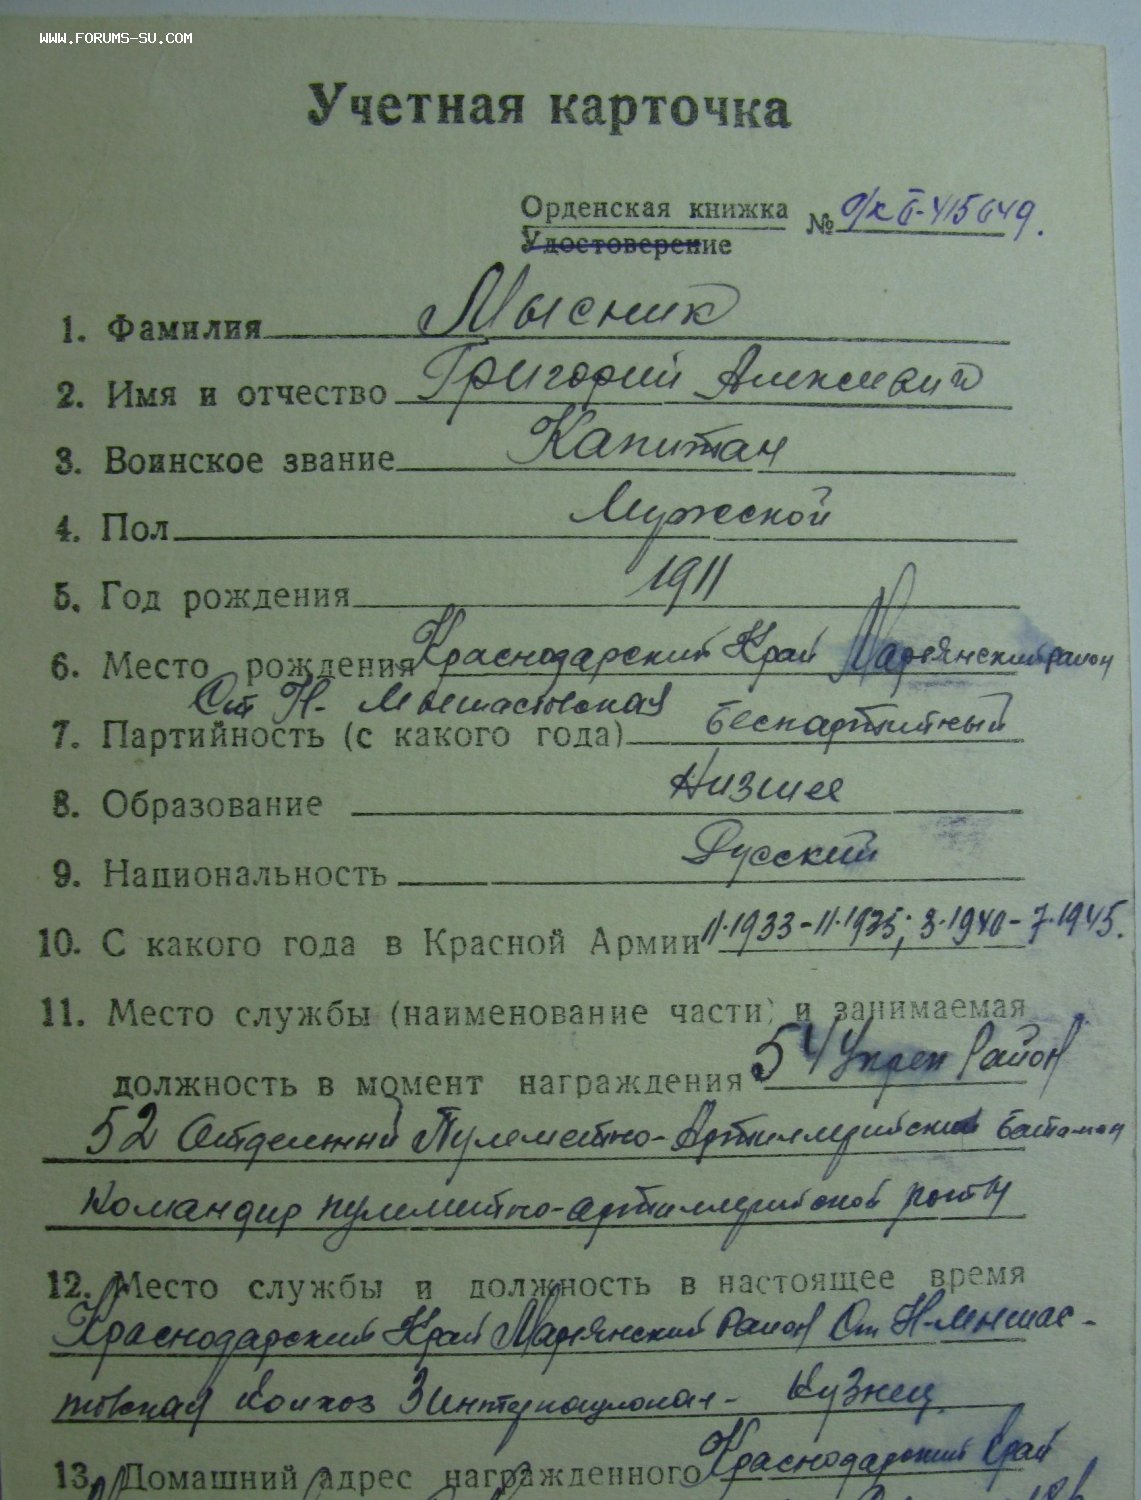 WWW.FORUMS-SU.COM
Учетная карточка
Орденская книжка № о/к Б-415649.
Удостоверение
1. Фамилия Мысник
2. Имя и отчество Григорий Алексеевич
3. Воинское звание Капитан
4. Пол Мужской
5. Год рождения 1911
6. Место рождения Краснодарский Край Марьянский район
Ст Н- Мышастовская
7. Партийность (с какого года) беспартийный
8. Образование Низшее
9. Национальность Русский
10. С какого года в Красной Армии 11.1933-11.1935; 3.1940-7.1945.
11. Место службы (наименование части) и занимаемая
должность в момент награждения 54 Укреп Район
52 Отдельний Пулеметно-Артиллерийский батальон
командир пулеметно-артиллерийской роты
12. Место службы и должность в настоящее время
Краснодарский Край Марьянский район Ст Н-Мышас-
товская колхоз 3 Интернационал- кузнец
13. Домашний адрес награжденного Краснодарский Край